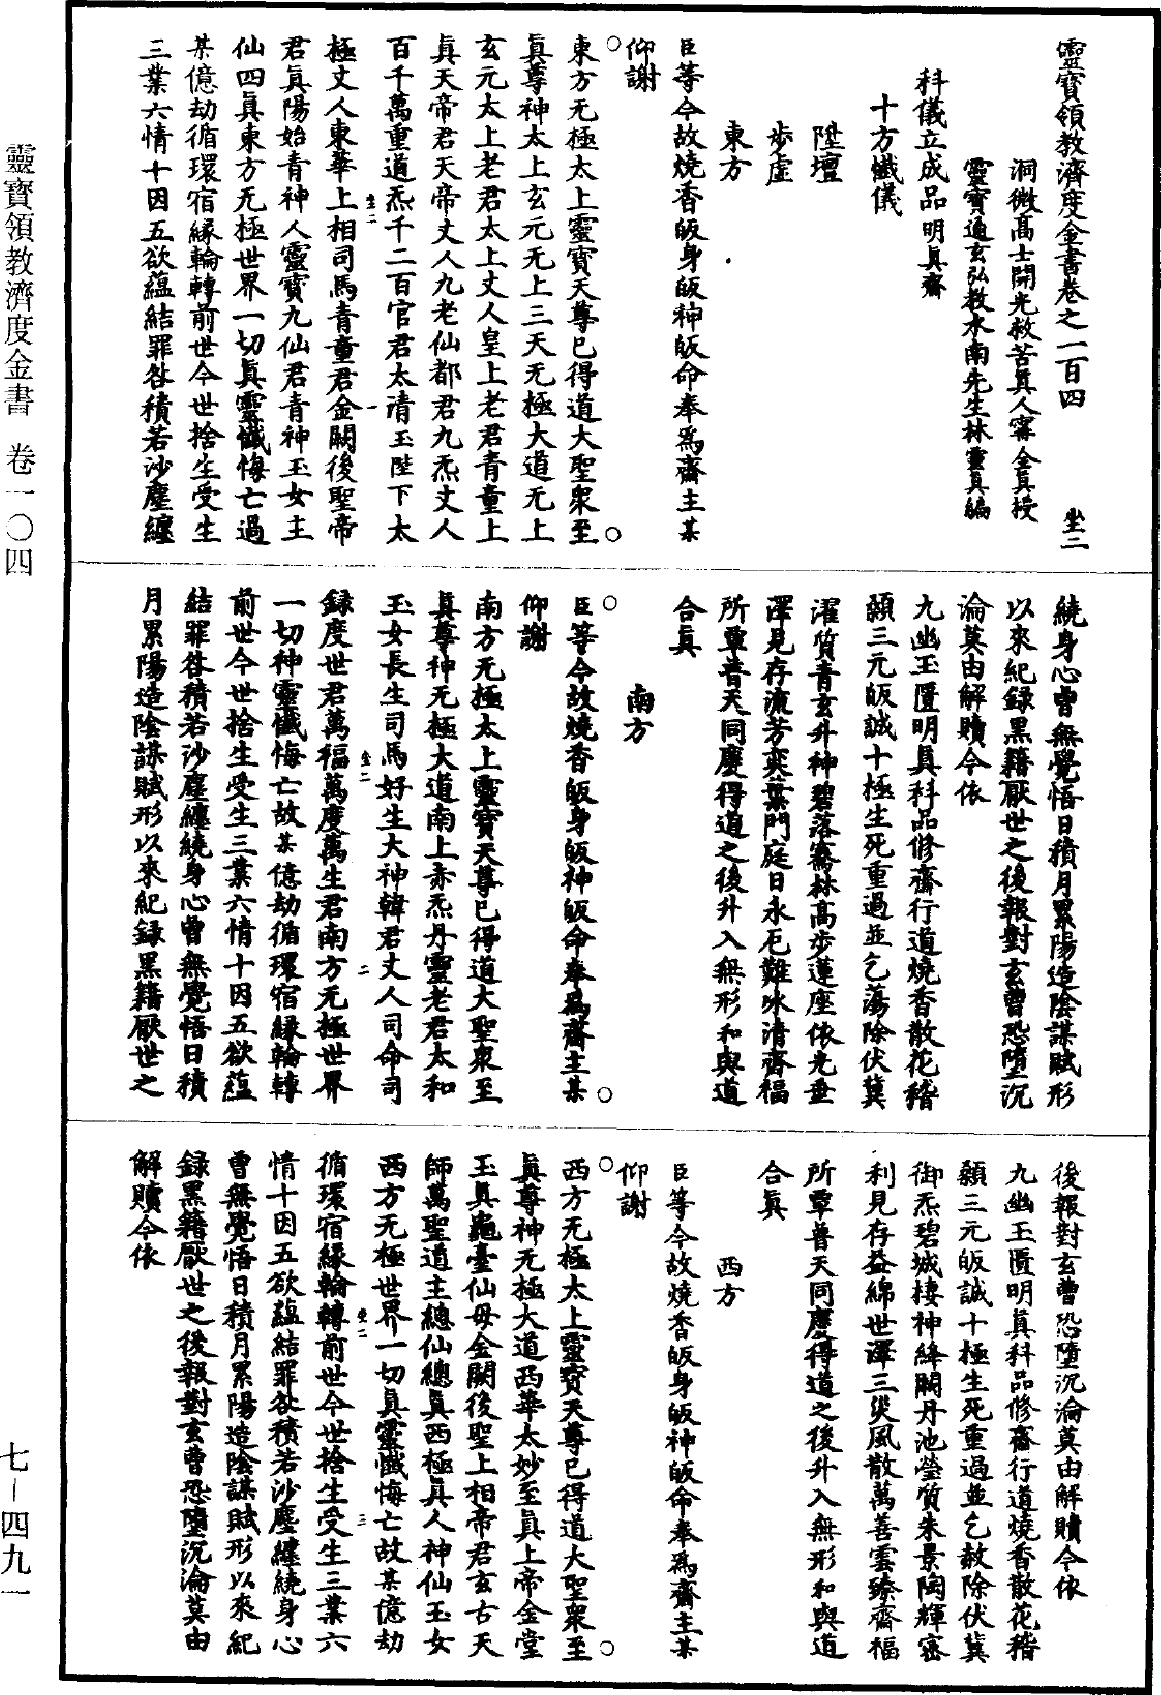 靈寶領教濟度金書卷之一百四 坐二
洞微高士開光救苦眞人甯全眞授
靈寶通玄弘教水南先生林靈眞編
科儀立成品明眞齋
十方懺儀
陞壇
步虛
東方
臣等今故燒香皈身皈神皈命奉爲齋主某
仰謝
東方无極太上靈寶天尊已得道大聖衆至
眞尊神太上玄元无上三天无極大道无上
玄元太上老君太上丈人皇上老君青童上
眞天帝君天帝丈人九老仙都君九炁丈人
百千萬重道炁千二百官君太清玉陛下太
極丈人東華上相司馬青童君金闕後聖帝
君眞陽始青神人靈寶九仙君青神玉女主
仙四眞東方无極世界一切眞靈懺悔亡過
某億劫循環宿縁輪轉前世今世捨生受生
三業六情十因五欲蘊結罪咎積若沙塵纏
繞身心曾無覺悟日積月累陽造陰謀賦形
以來紀録黑籍厭世之後報對玄曹恐墮沉
淪莫由解贖今依
九幽玉匱明眞科品修齋行道燒香散花稽
顙三元皈誠十極生死重過並乞蕩除伏冀
濯質青玄升神碧落騫林高步蓮座依光垂
澤見存流芳奕葉門庭日永厄難冰清齋福
所覃普天同慶得道之後升入無形和與道
合眞
南方
臣等今故燒香皈身皈神皈命奉爲齋主某
仰謝
南方无極太上靈寶天尊已得道大聖衆至
眞尊神无極大道南上赤炁丹靈老君太和
玉女長生司馬好生大神韓君丈人司命司
録度世君萬福萬度萬生君南方无極世界
一切神靈懺悔亡故某億劫循環宿縁輪轉
前世今世捨生受生三業六情十因五欲蘊
結罪咎積若沙塵纏繞身心曾無覺悟日積
月累陽造陰謀賦形以來紀録黑籍厭世之
後報對玄曹恐墮沉淪莫由解贖今依
九幽玉匱明眞科品修齋行道燒香散花稽
顙三元皈誠十極生死重過並乞赦除伏冀
御炁碧城棲神絳闕丹池瑩質朱景陶輝密
利見存益綿世澤三災風散萬善雲臻齋福
所覃普天同慶得道之後升入無形和與道
合眞
西方
臣等今故燒香皈身皈神皈命奉爲齋主某
仰謝
西方无極太上靈寶天尊已得道大聖衆至
眞尊神无極大道西華太妙至眞上帝金堂
玉眞龜臺仙母金闕後聖上相帝君玄古天
師萬聖道主總仙總眞西極眞人神仙玉女
西方无極世界一切眞靈懺悔亡故某億劫
循環宿縁輪轉前世今世捨生受生三業六
情十因五欲蘊結罪咎積若沙塵纏繞身心
曾無覺悟日積月累陽造陰謀賦形以來紀
録黑籍厭世之後報對玄曹恐墮沉淪莫由
解贖今依
靈寶領教濟度金書 卷一〇四
七—四九一